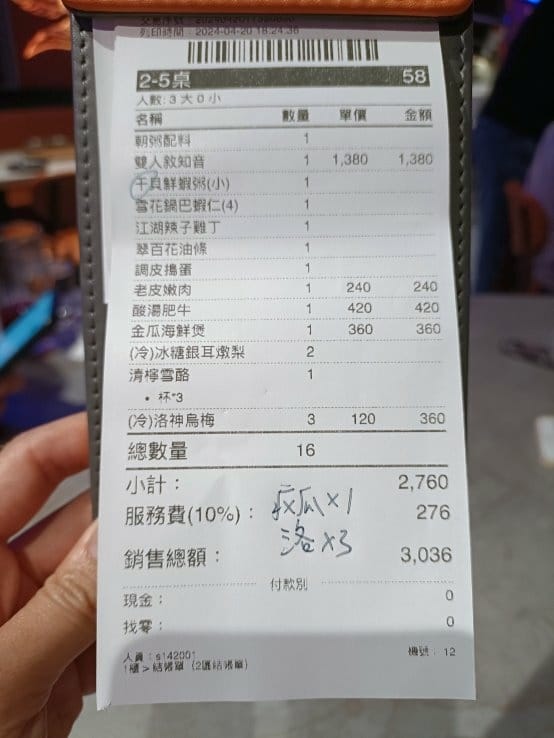 列印時間：2024-04-20 18:24:36
2-5桌 58
人數: 3 大 0 小
名稱 數量 單價 金額
朝粥配料 1
雙人敘知音 1 1,380 1,380
干貝鮮蝦粥(小) 1
雪花鍋巴蝦仁(4) 1
江湖辣子雞丁 1
翠百花油條 1
調皮搗蛋 1
老皮嫩肉 1 240 240
酸湯肥牛 1 420 420
金瓜海鮮煲 1 360 360
(冷)冰糖銀耳燉梨 2
清檸雪酪 1
• 杯*3
(冷)洛神烏梅 3 120 360
總數量 16
小計： 2,760
服務費(10%)： 276
瓜x1
洛x3
銷售總額： 3,036
付款別
現金： 0
找零： 0
人員：s142001 機號：12
1櫃 > 結帳單 (2廳結帳單)